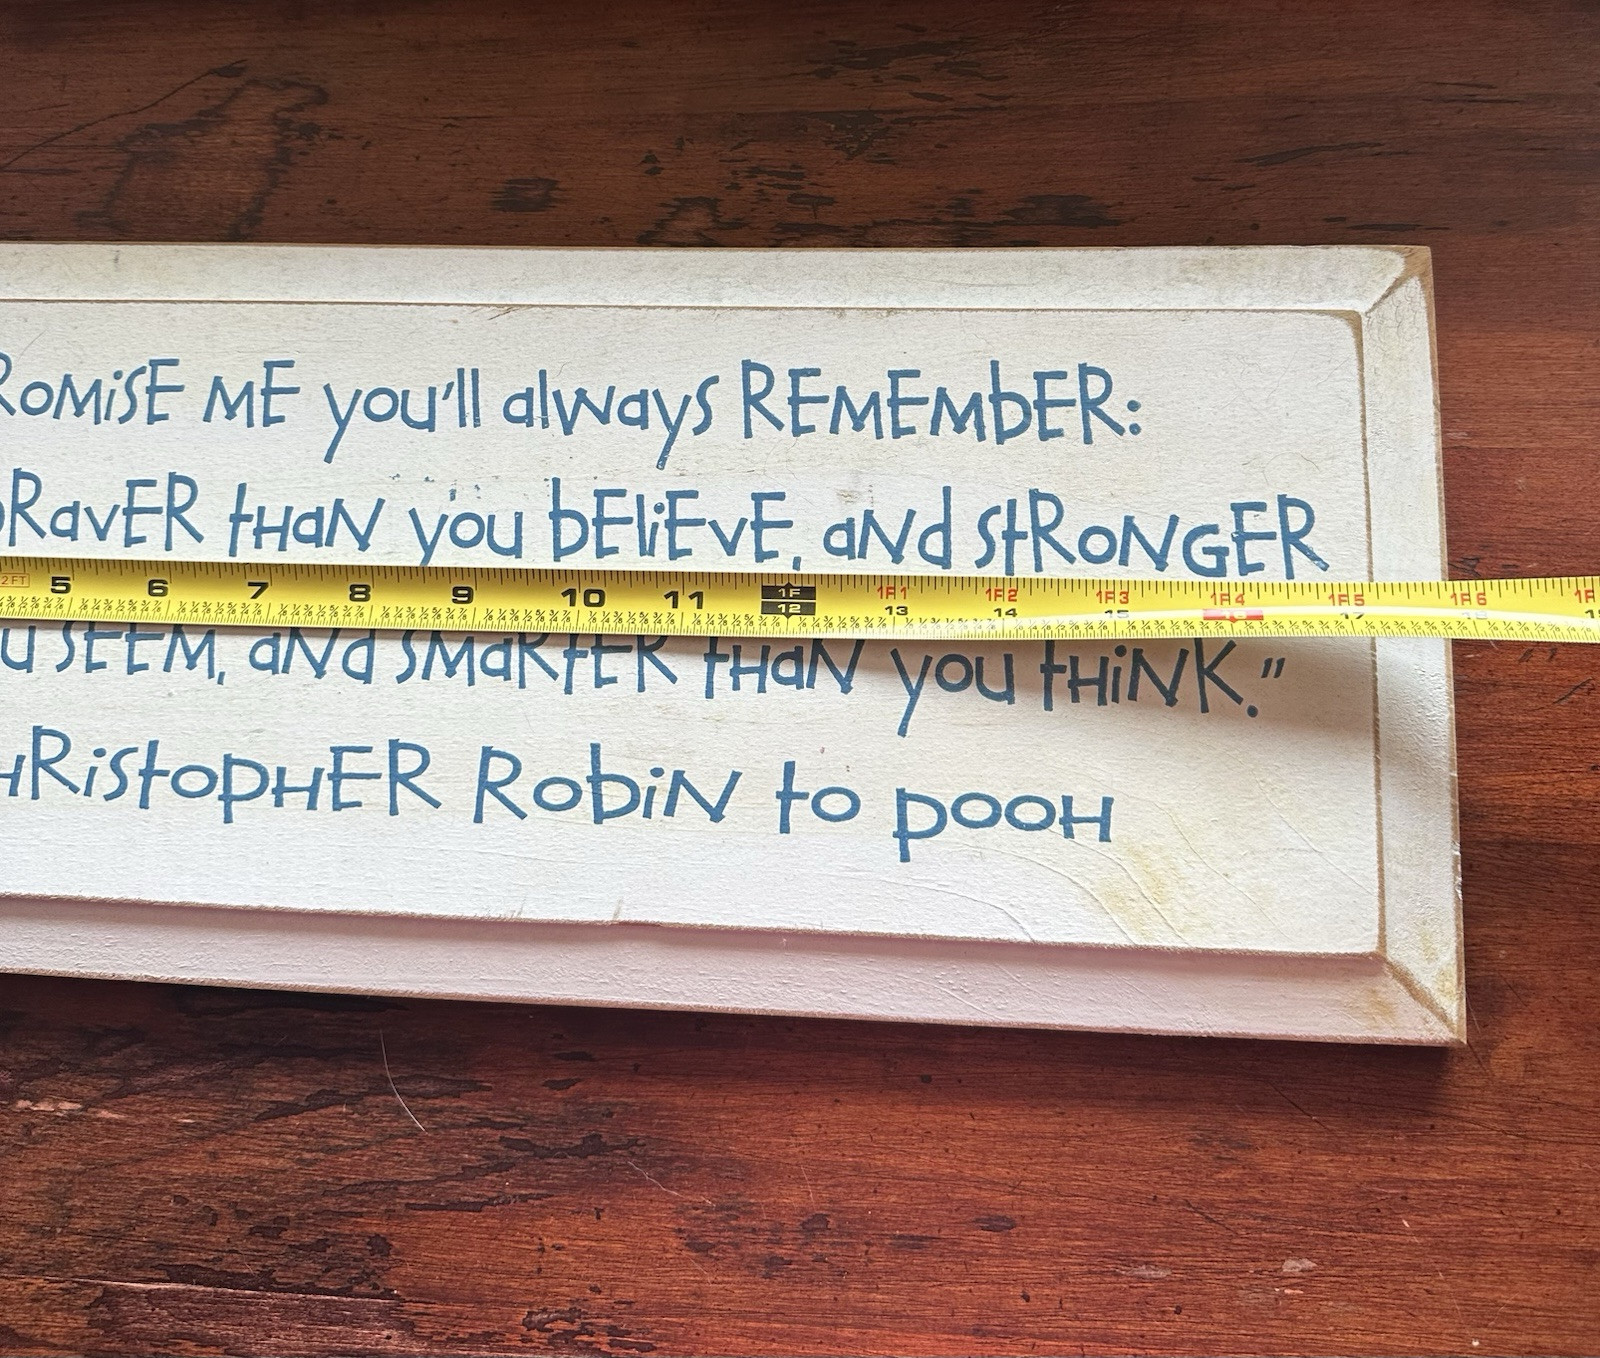 ROMiSE ME you'll always REMEMbER:
bRavER tHaN you bEliEvE, aNd stRONGER
2FT 5 6 7 8 9 10 11 1F 1F1 1F2 1F3 1F4 1F5 1F6
12 13 14 15 16 17 18
u SEEM, aNd SMaRtER tHaN you tHiNK."
HRistopHER RobiN to pooH